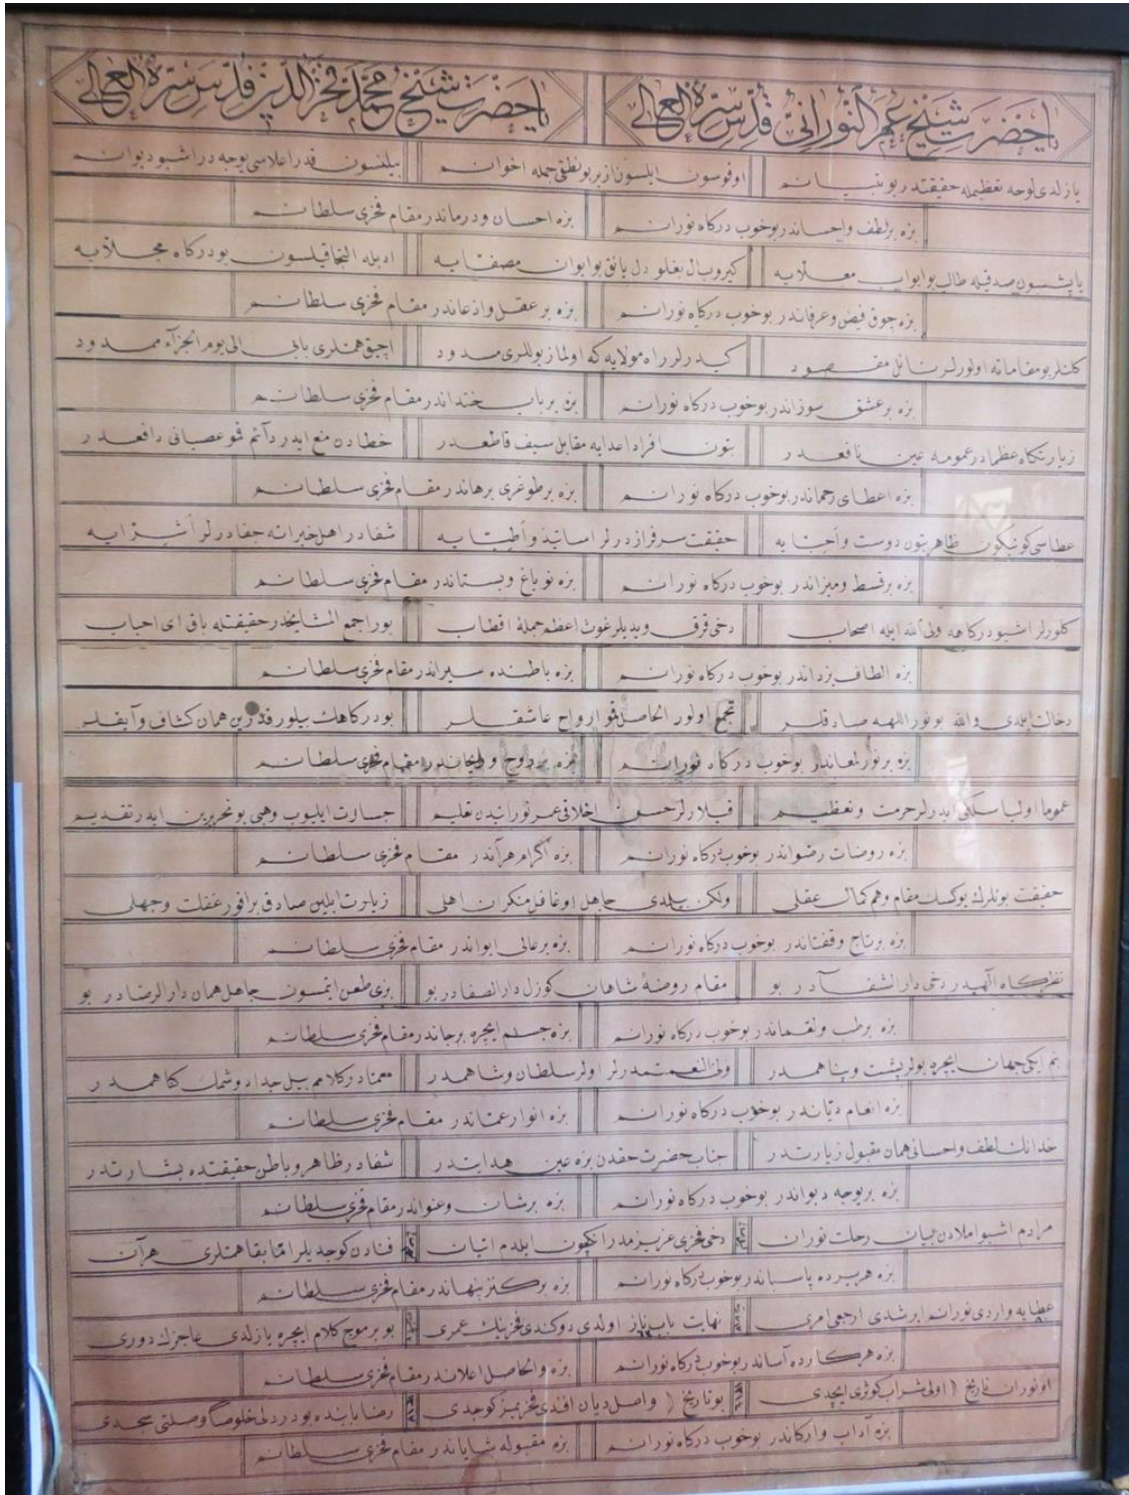 يا حضرت شيخ عمر النورانى قدس سره العالى
يا حضرت شيخ محمد فخر الدين قدس سره العالى
يازلدى لوحه تعظيمله حقيقتدر بو تبيانم اوقوسون ايلسون ازبر بو نطقى جمله اخوانم بيلنسون قدر اعلاسى يوجه در اشبو ديوانم
بزه بر لطف واحساندر بو خوب دركاه نورانم بزه احسان ودرماندر مقام فخرى سلطانم
ياپشسون صدقيله طالب بو ابواب معلايه كيروب بال بغلو دل يانق بو ايوان مصفايه ادبله التجا قيلسون بو دركاه مجلايه
بزه چوق فيض وعرفاندر بو خوب دركاه نورانم بزه بر عقل واذعاندر مقام فخرى سلطانم
كلنلر بو مقاماته اولورلر نائل مقصود كيدرلر راه مولايه كه اولماز يوللرى مسدود اچيق همتلرى بابى الى يوم الجزآء ممدود
بزه بر عشق سوزاندر بو خوب دركاه نورانم بزه بر باب خنداندر مقام فخرى سلطانم
زيارتكاه عظمادر عمومه عين نافعدر بتون افراد اعدايه مقابل سيف قاطعدر خطادن منع ايدر دآئم قو عصيانى دافعدر
بزه اعطاى رحماندر بو خوب دركاه نورانم بزه بر طوغرى برهاندر مقام فخرى سلطانم
عطاسى كون بكون ظاهر بتون دوست واحبايه حقيقت سرفرازدرلر اساتيذ واطبايه شفادر اهل خيراته جفادرلر اشرايه
بزه بر قسط وميزاندر بو خوب دركاه نورانم بزه نو باغ وبستاندر مقام فخرى سلطانم
كلورلر اشبو دركاهه ولى الله ايله اصحاب دخى قرق ويديلر غوث اعظم جملۀ اقطاب بورا جمع المشايخدر حقيقتله باق اى احباب
بزه الطاف يزداندر بو خوب دركاه نورانم بزه باطنده سيراندر مقام فخرى سلطانم
دخالت ايلدى والله بو نور اللهه صادقلر تجمع اولور الحاصل قو ارواح عاشقلر بو دركاهك بيلور قدرين همان كشاف وآيقلر
بزه بر نور لمعاندر بو خوب دركاه نورانم بزه بر روح وريحاندر مقام فخرى سلطانم
عموما اوليا سلكى ايدرلر حرمت وتعظيم قيلارلر حسن اخلاقى عمر نورانيدن تعليم جسارت ايليوب وهبى بو تحريرين ايدر تقديم
بزه روضات رضواندر بو خوب دركاه نورانم بزه اكرام هر آندر مقام فخرى سلطانم
حقيقت بونلرك يوكسك مقام وهم كمال عقلى ولكن بيلمدى جاهل او غافل منكران اهلى زيارت ايلين صادق براقور غفلت وجهلى
بزه بر تاج وقفتاندر بو خوب دركاه نورانم بزه بر عالى ايواندر مقام فخرى سلطانم
نظركاه الهيدر دخى دار الشفآدر بو مقام روضۀ شاهان كوزل دار الصفادر بو بزى طعن ايتمسون جاهل همان دار الرضادر بو
بزه بر طب ولقماندر بو خوب دركاه نورانم بزه جسم ايچره بر جاندر مقام فخرى سلطانم
بنم ايكى جهان ايچره بولر پشت وپناهمدر ولى النعمتمدرلر اولر سلطان وشاهمدر معمادر كلامم بيل جدا دوشمك كناهمدر
بزه انعام دياندر بو خوب دركاه نورانم بزه انوار عماندر مقام فخرى سلطانم
خدانك لطف واحسانى همان مقبول زيارتدر جناب حضرت حقدن بزه عين هدايتدر شفادر ظاهر وباطن حقيقتده بشارتدر
بزه بر يوجه ديواندر بو خوب دركاه نورانم بزه بر شان وعنواندر مقام فخرى سلطانم
مرادم اشبو املادن بيان رحلت نوران دخى فخرى عزيزمدر انكچون ايلدم اتيان فنادن كوچديلر اما بقا همتلرى هر آن
بزه هر يرده پاسباندر بو خوب دركاه نورانم بزه بر كنز پنهاندر مقام فخرى سلطانم
عطايه واردى نورانم ايرشدى ارجعى امرى نهايت باب ناز اولدى دوكندى فخرينك عمرى بو بر موج كلام ايچره يازلدى عاجزك دورى
بزه هر كارده آساندر بو خوب دركاه نورانم بزه والحاصل اعلاندر مقام فخرى سلطانم
او نوران تاريخ ( اولى شراب كوثرى ايچدى بو تاريخ ( واصل ديان افندى فخريمز كوچدى رضا بابنده بو دردلى خلوصا وصلتى سچدى
بزه آداب واركاندر بو خوب دركاه نورانم بزه مقبوله شاياندر مقام فخرى سلطانم